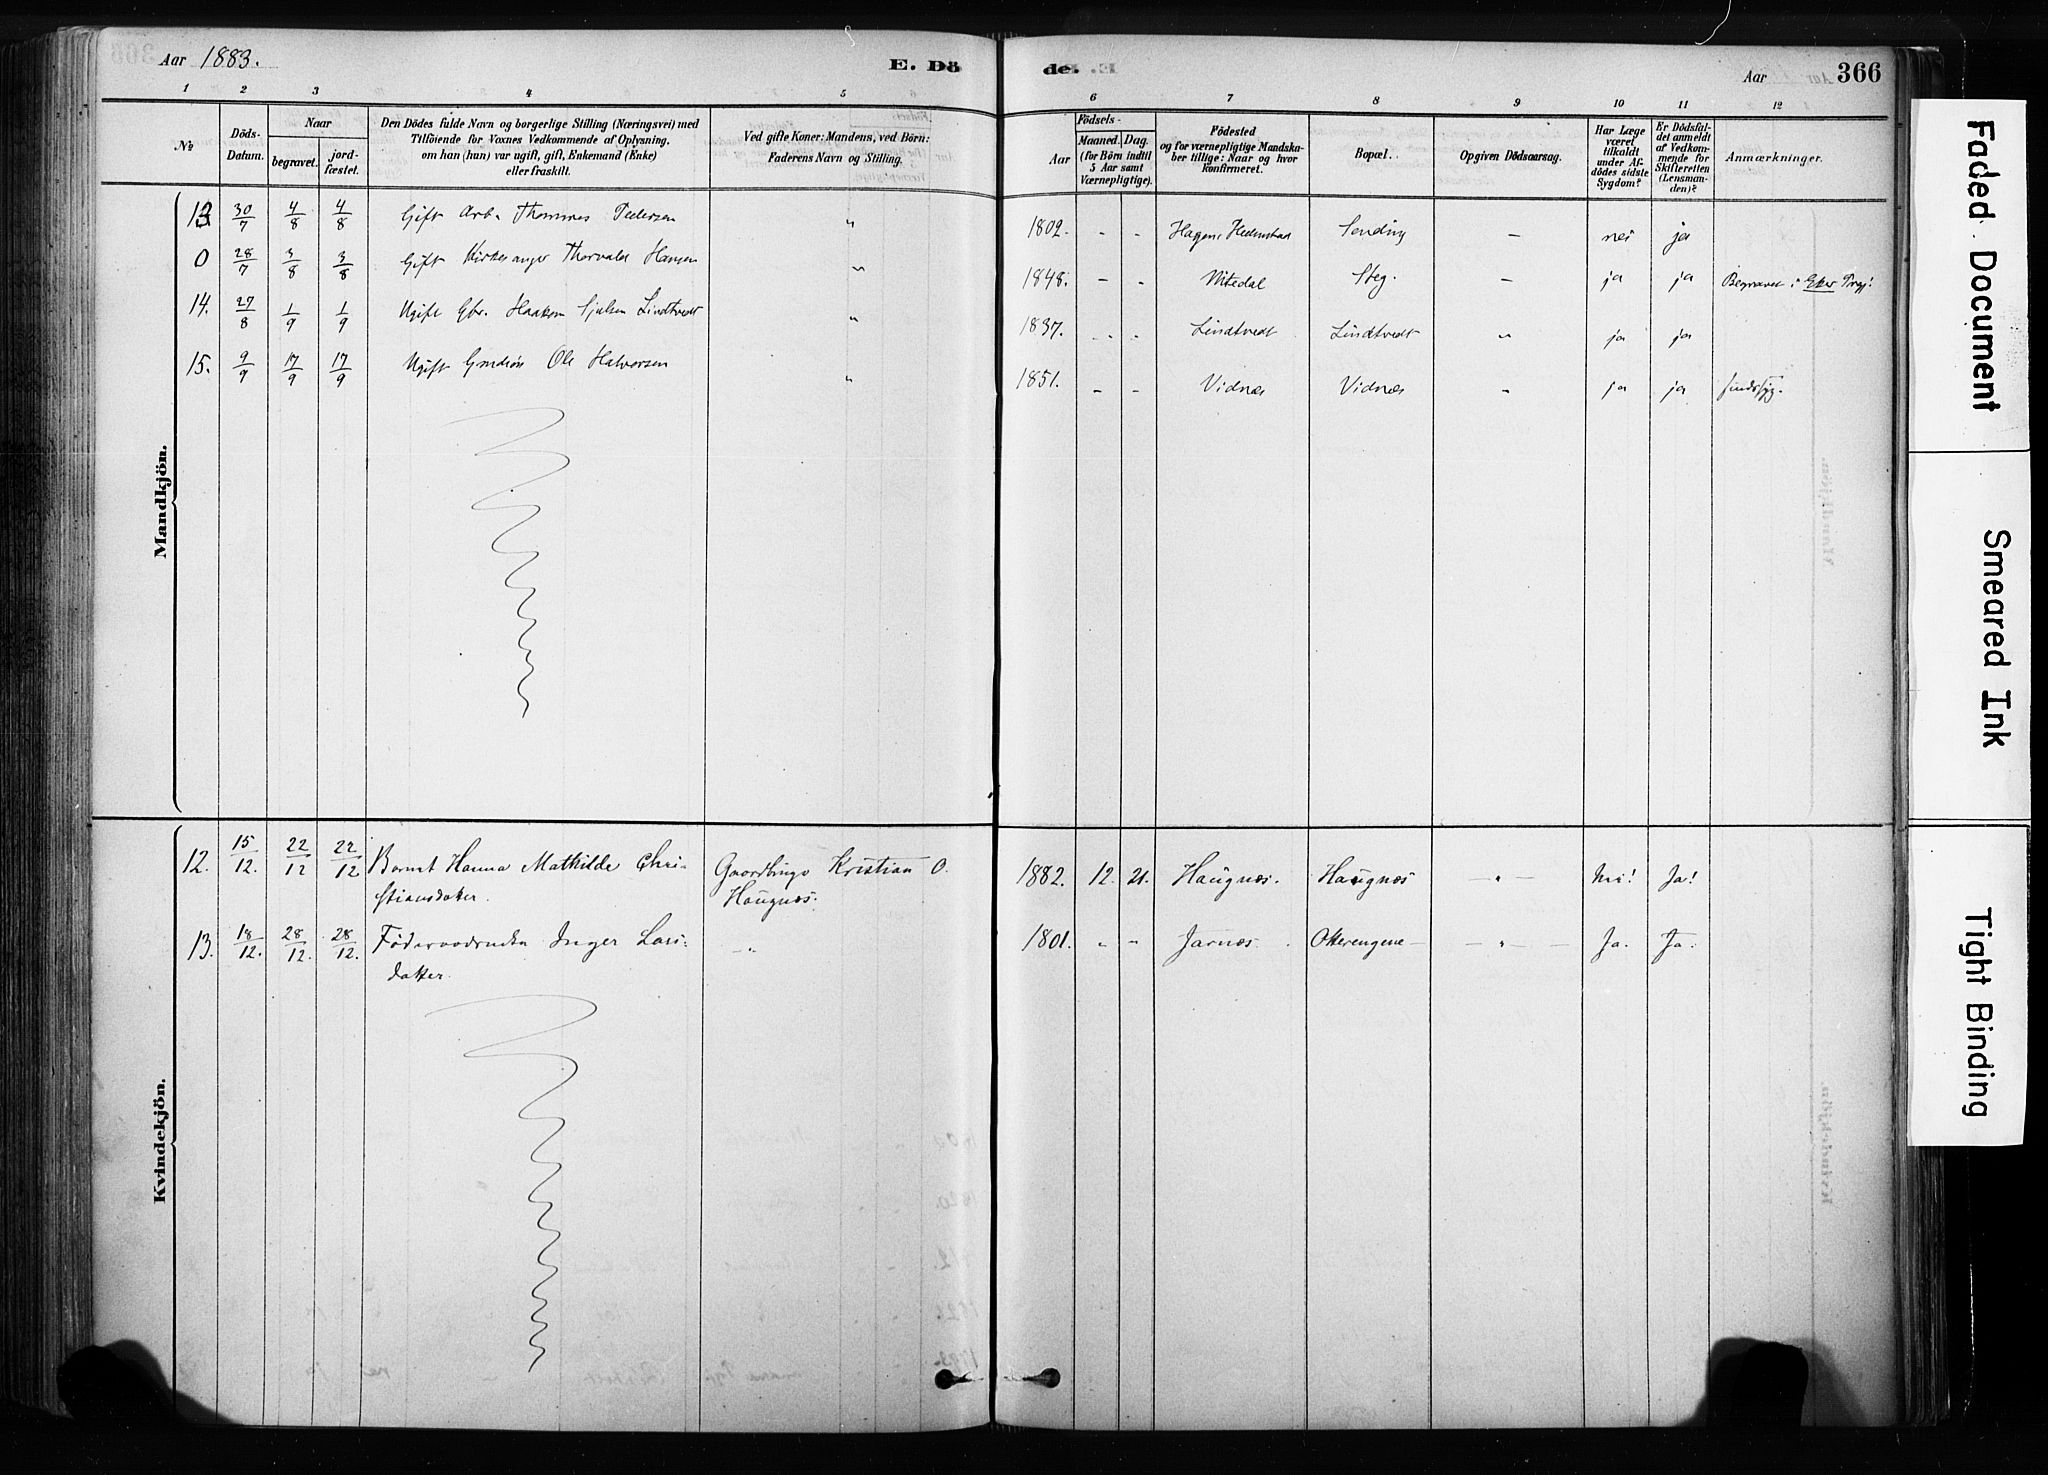 Aar 1883.
E. Dö
de.
Aar
366
1 2 3 4 5
6 7 8 9 10 11 12
№
Döds-
Datum.
Naar
begravet.
jord-
fæstet.
Den Dödes fulde Navn og borgerlige Stilling (Næringsvei) med
Tilföiende for Voxnes Vedkommende af Oplysning,
om han (hun) var ugift, gift, Enkemand (Enke)
eller fraskilt.
Ved gifte Koner: Mandens, ved Börn:
Faderens Navn og Stilling.
Födsels-
Aar
Maaned.
Dag.
(for Börn indtil
5 Aar samt
Værnepligtige).
Födested
og for værnepligtige Mandska-
ber tillige: Naar og hvor
konfirmeret.
Bopæl.
Opgiven Dödsaarsag.
Har Læge
været
tilkaldt
under Af-
dödes sidste
Sygdom?
Er Dödsfal-
det anmeldt
af Vedkom-
mende for
Skifteretten
(Lensman-
den)?
Anmærkninger.
Mandkjön.
13 30/7 4/8 4/8 Gift Arb. Thommes Pedersen " 1802. - - Hagene Hedenstad Sending — nei ja
0 28/7 3/8 3/8 Gift Kirkesanger Thorvald Hansen " 1848. - - Nitedal Steg. — ja ja Begravet i Eker Prgj!
14. 27/8 1/9 1/9 Ugift Gbr. Haakon Lindtvedt " 1837. - - Lindtvedt Lindtvedt " ja ja
15. 9/9 17/9 17/9 Ugift Ole Halvorsen " 1851. - - Vidnæs Vidnæs - ja ja sindssyg.
Kvindekjön.
12. 15/12. 22/12 22/12 Barnet Hanna Mathilde Chri- Gaardbruger Kristian O. 1882. 12. 21. Haugnæs. Haugnæs — " — Nei! Ja!
stiansdatter. Haugnæs.
13. 18/12. 28/12. 28/12. Föderaadsenke Inger Lars- — " 1801. " " Jarnæs. Otterengene — — " — — Ja. Ja.
datter.
Faded Document
Smeared Ink
Tight Binding